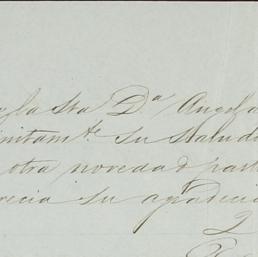 y la Sra D.ª Angela
finitam.te su salud
otra novedad part
recia su apreciá
2